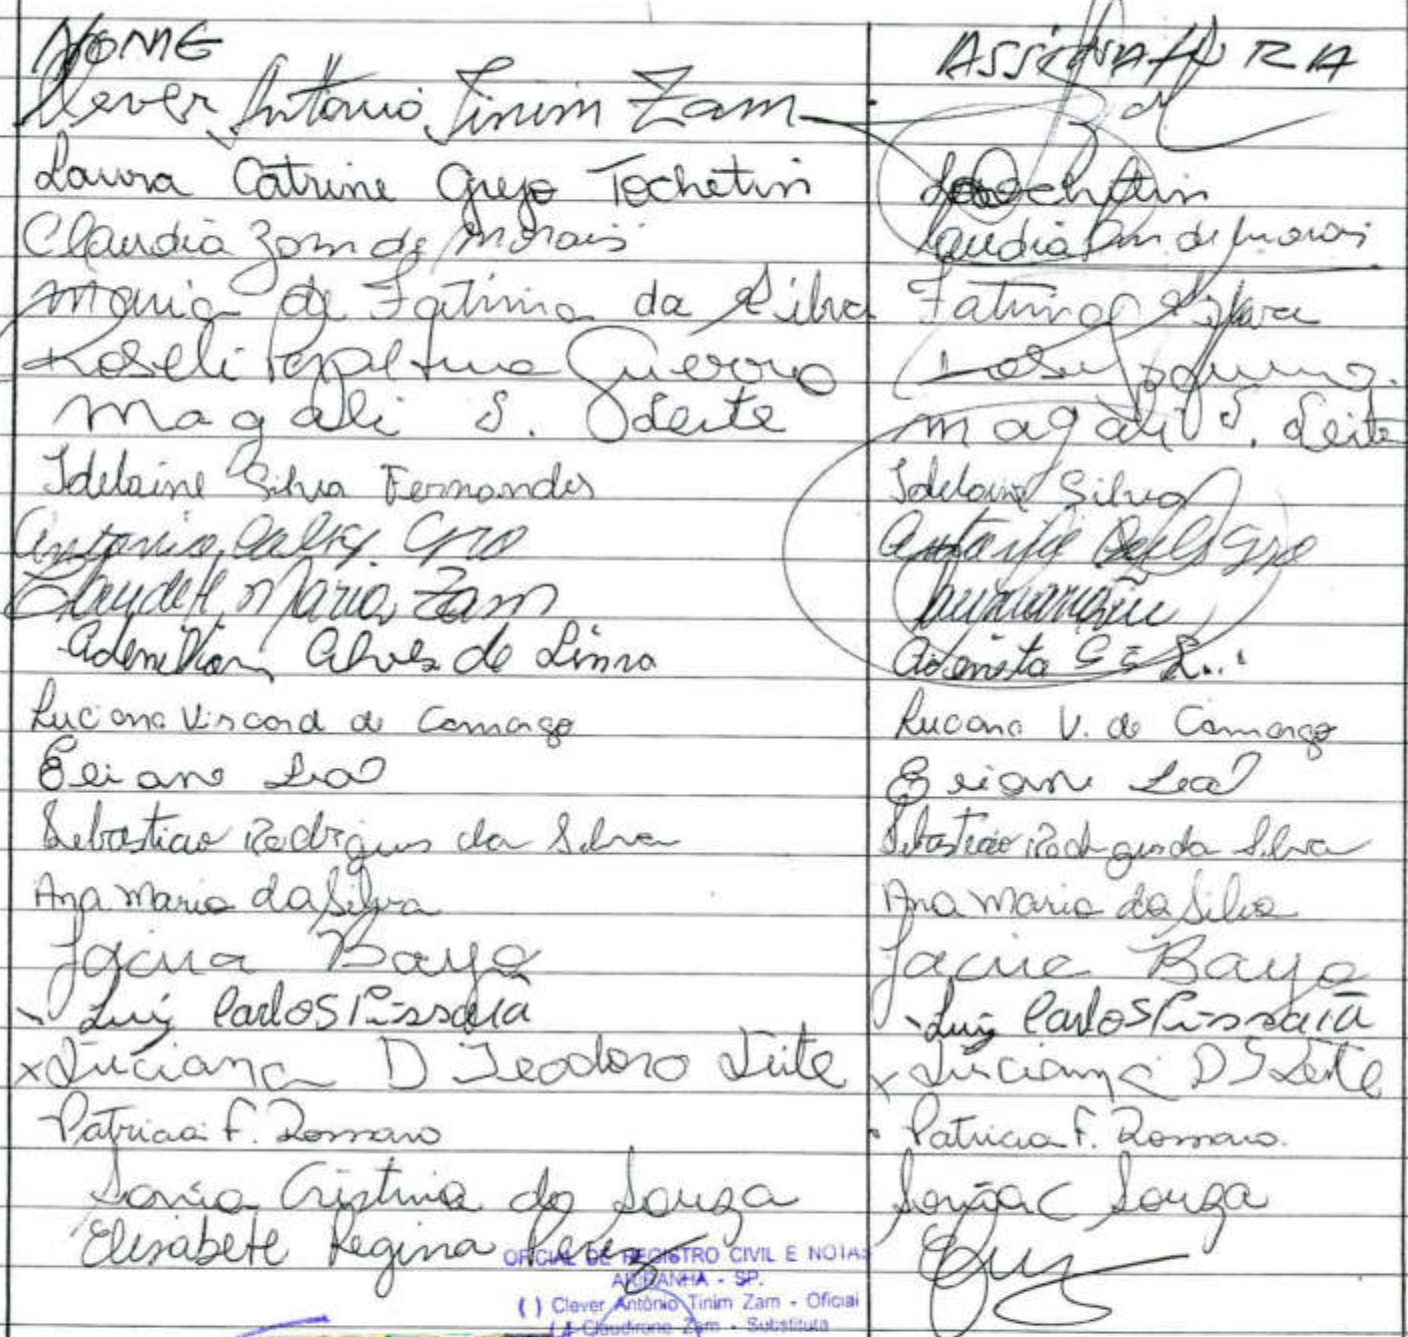 NOME ASSINATURA
Clever Antonio Tinim Zam
Laura Catrine Grejo Tochetin Tochetin
Claudia Zam de Morais Claudia Zam de Morais
Maria de Fatima da Silva Fatima Silva
Roseli Guerra
Magali S. Leite Magali S. Leite
Idelaine Silva Fernandes Idelaine Silva
Antonio Gro Antonio Gro
Claudete Maria Zam
Alves de Lima
Luciana Viscard de Camargo Luciana V. de Camargo
Eliane Leal Eliane Leal
Sebastiao Rodrigues da Silva Sebastiao Rodrigues da Silva
Ana Maria da Silva Ana Maria da Silva
Jacira Bayo Jacira Bayo
Luiz Carlos Pissaia Luiz Carlos Pissaia
x Luciana D Teodoro Leite x Luciana D T Leite
Patricia F. Romano Patricia F. Romano.
Sonia Cristina de Souza Sonia C Souza
Elisabete Regina Perez
OFICIAL DE REGISTRO CIVIL E NOTAS
ARIRANHA - SP.
( ) Clever Antônio Tinim Zam - Oficial
Zam - Substituta